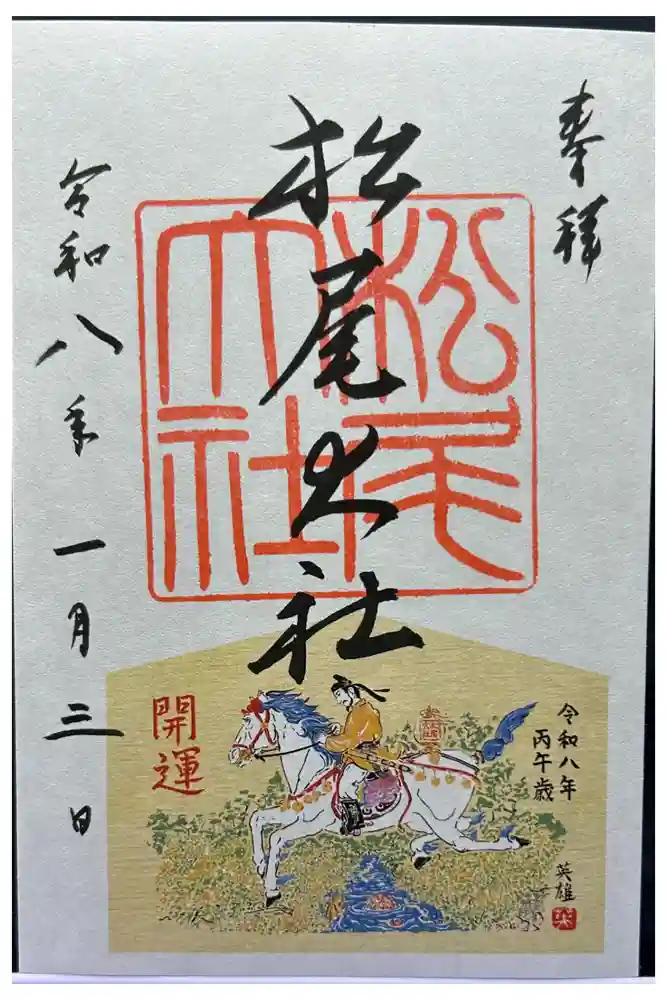 奉拝
松尾大社
松尾大社
令和八年一月三日
令和八年
丙午歳
開運
英雄